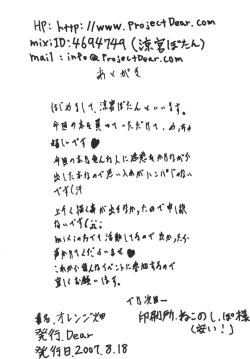 HP: http://www.ProjectDear.com
mixiID:4694749 (涼宮ぼたん)
mail : info@ProjectDear.com
あとがき
はじめまして、涼宮ぼたんといいます。
今回の本を買っていただけて、めっちゃ
嬉しいです♥
今回の本は色んな人に迷惑をかけながら
出した本なので思い入れがハンパじゃない
です(汗
上手く描く事が出来なかったので申し訳
ないです(;;
mixiの方でも活動してるので良かったら
声かけてくださいませ♥
これからも色んなイベントに参加するので
宜しくお願いします。
では次回ー
著者、オレンジ畑
発行、Dear
発行日、2007.8.18
印刷所、ねこのしっぽ様
(安い!)